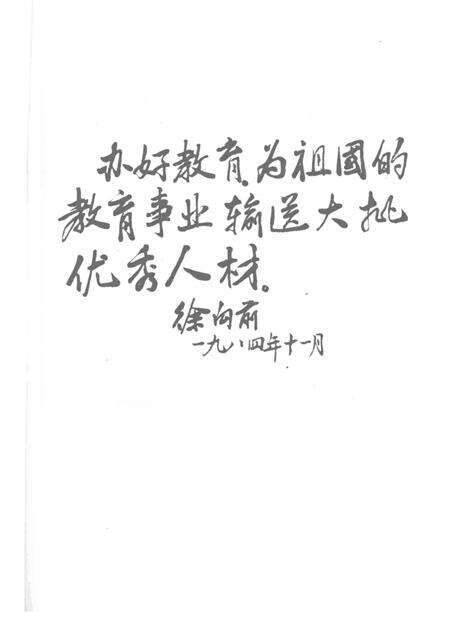 办好教育,为祖國的
教育事业输送大批
优秀人材。
徐向前
一九八四年十一月